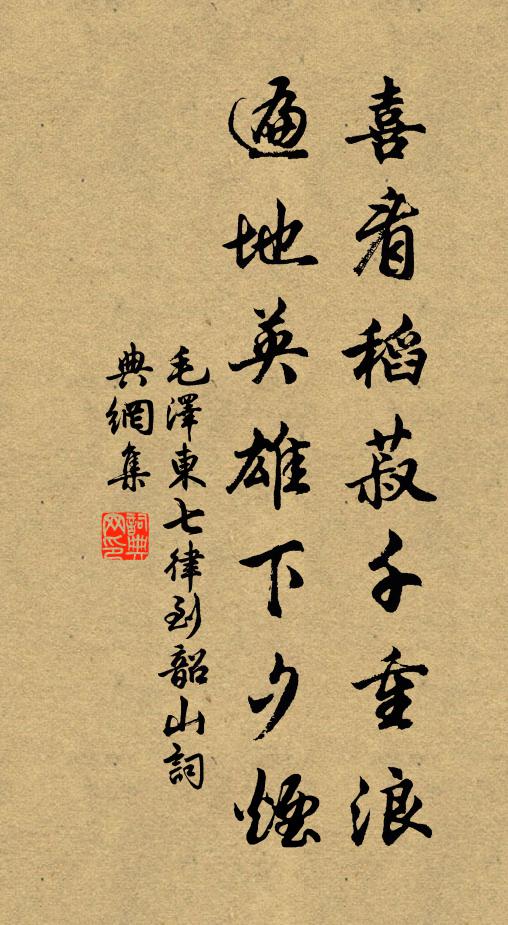 喜看稻菽千重浪
遍地英雄下夕煙
毛澤東七律到韶山詞
典網集
詞典
网印